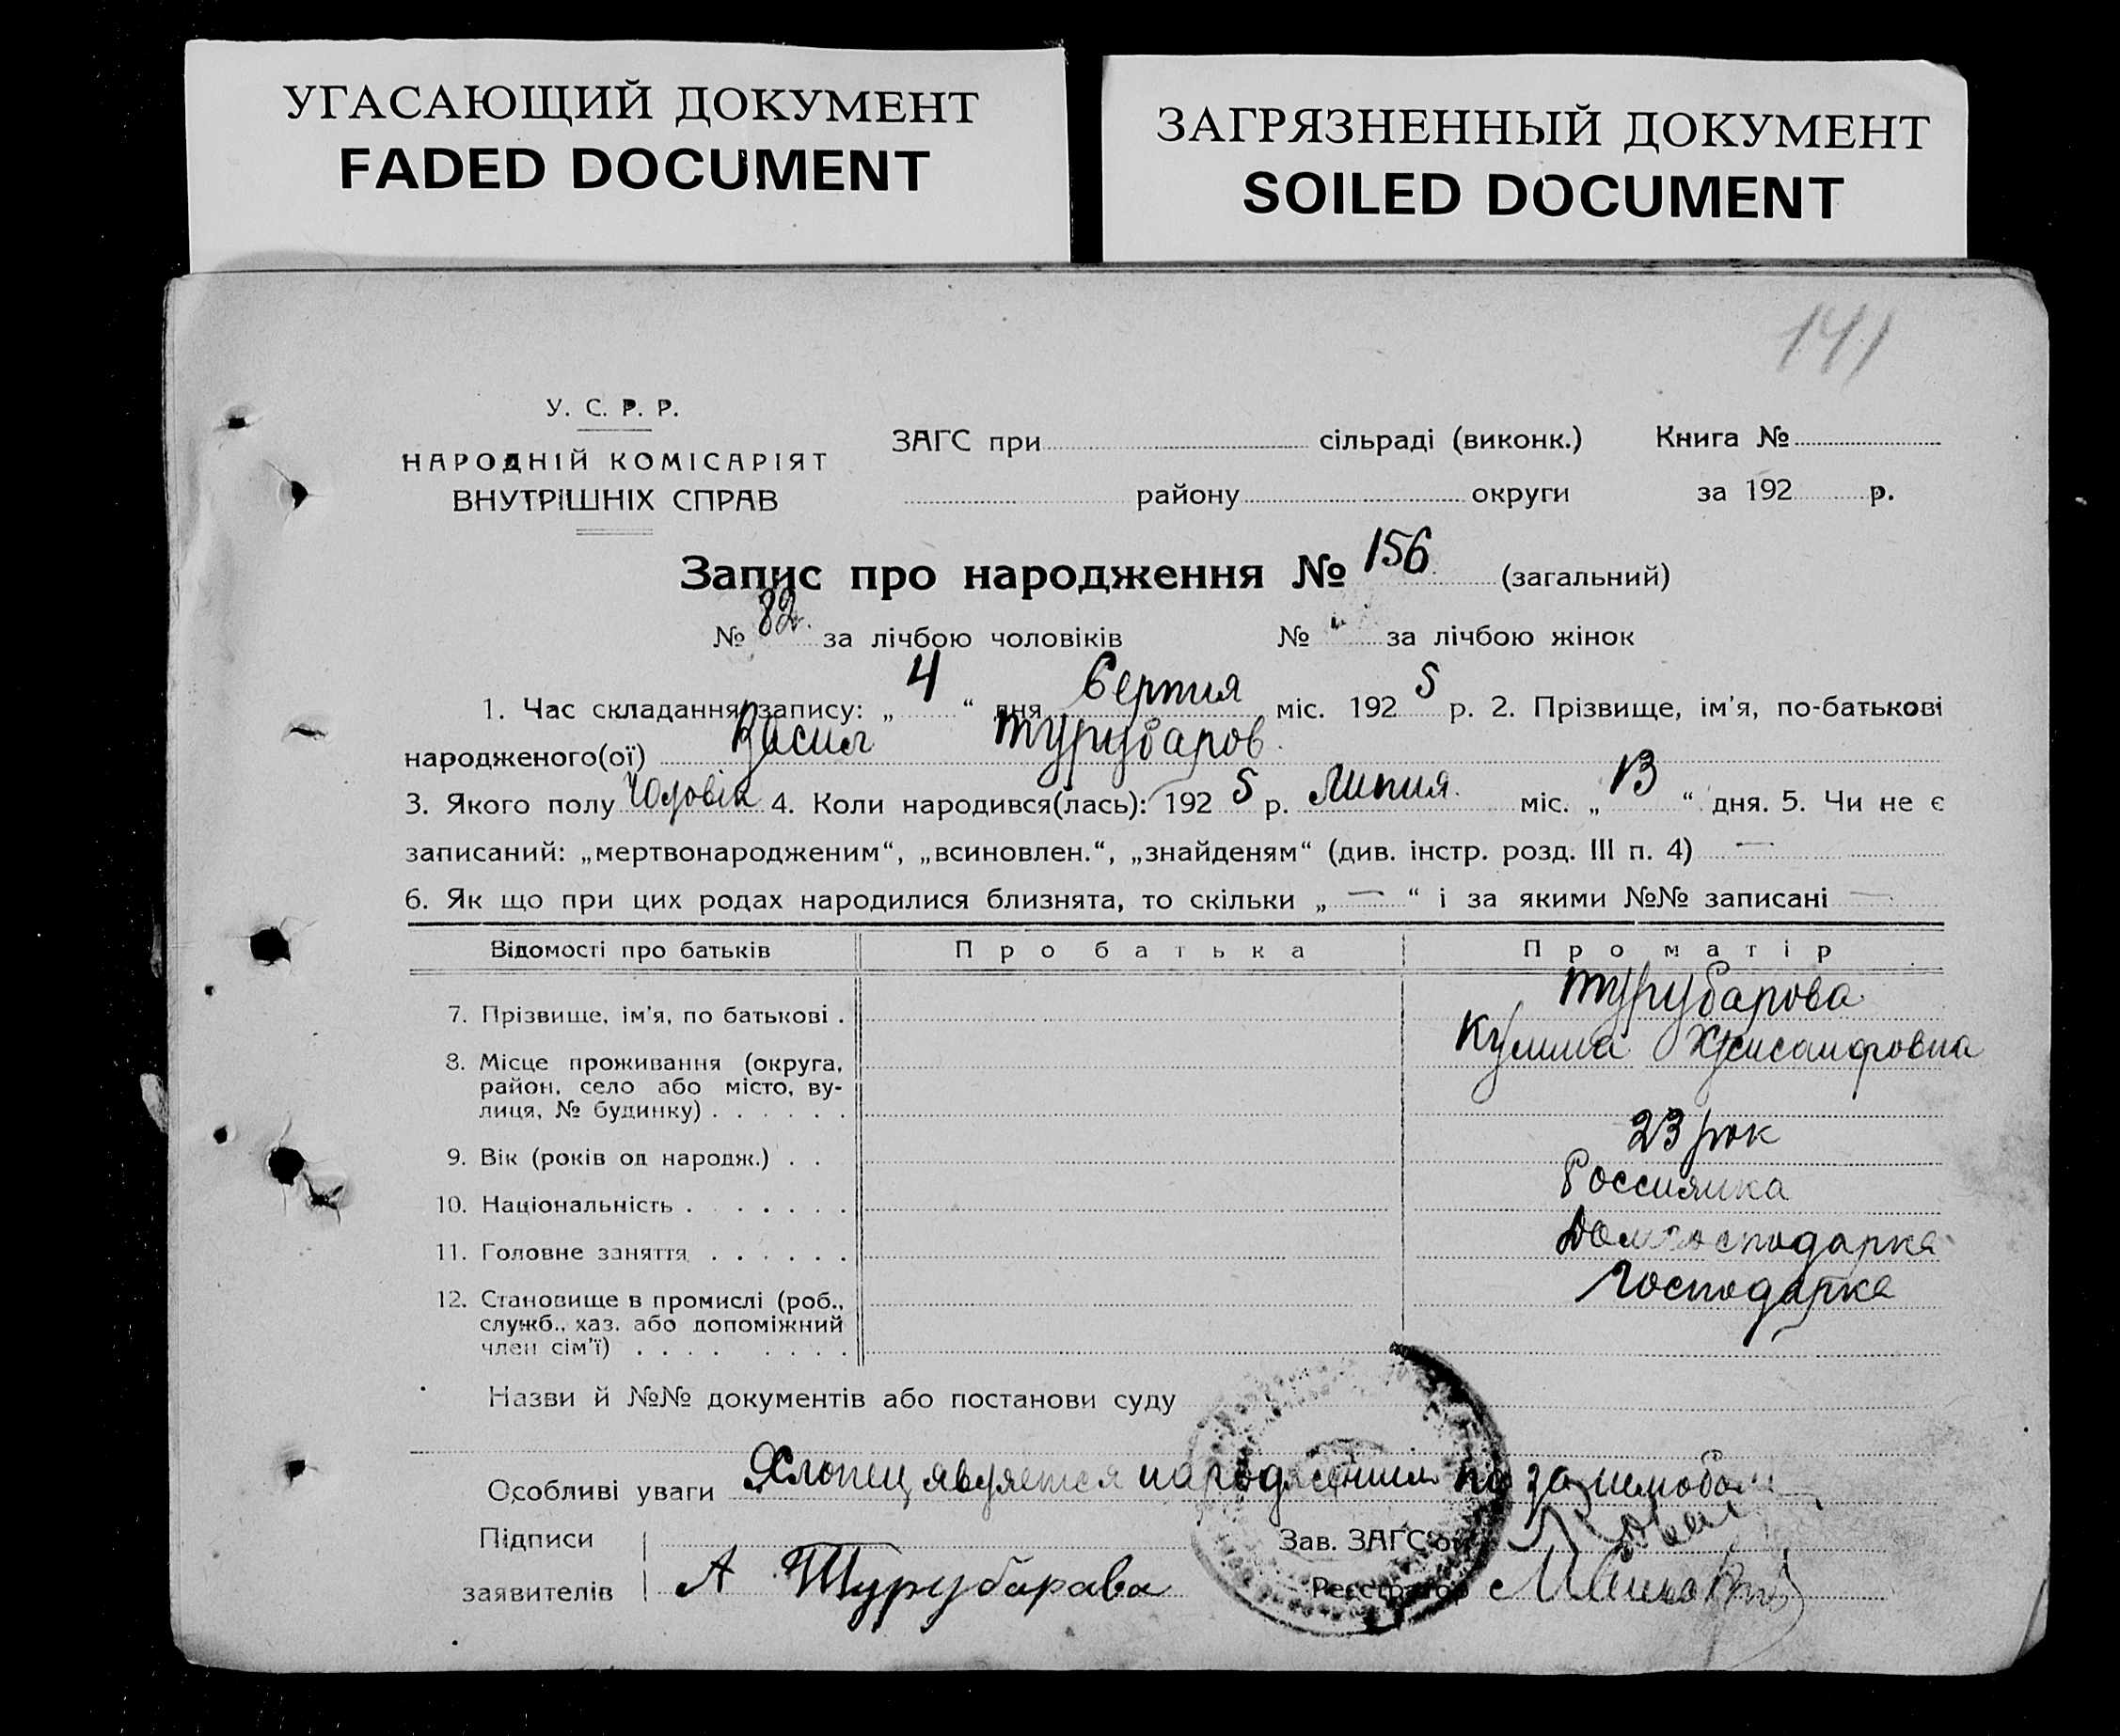 УГАСАЮЩИЙ ДОКУМЕНТ
FADED DOCUMENT
ЗАГРЯЗНЕННЫЙ ДОКУМЕНТ
SOILED DOCUMENT
141
У. С. Р. Р.
НАРОДНІЙ КОМІСАРІЯТ
ВНУТРІШНІХ СПРАВ
ЗАГС при сільраді (виконк.) Книга №
району округи за 192 р.
Запис про народження № 156 (загальний)
№ 82. за лічбою чоловіків № " за лічбою жінок
1. Час складання запису: „ 4 “ дня Серпня міс. 192 5 р. 2. Прізвище, ім'я, по-батькові
народженого(ої) Васил Турубаров.
3. Якого полу Чоловік 4. Коли народився(лась): 192 5 р. Липня. міс. „ 13 “ дня. 5. Чи не є
записаний: „мертвонародженим“, „всиновлен.“, „знайденям“ (див. інстр. розд. III п. 4) —
6. Як що при цих родах народилися близнята, то скільки „ — “ і за якими №№ записані —
Відомості про батьків Про батька Про матір
7. Прізвище, ім'я, по батькові . Турубарова
Хрисанфровна
8. Місце проживання (округа,
район, село або місто, ву-
лиця, № будинку) . . . . . .
9. Вік (років од народж.) . . 23 рок
10. Національність . . . . . . . Россиянка
11. Головне заняття . . . . . . Домгосподарка
12. Становище в промислі (роб.,
служб., хаз. або допоміжний
член сім'ї) . . . . . . . . Господарка
Назви й №№ документів або постанови суду
Особливі уваги Хлопец является народженим по за
Підписи
заявителів А Турубарава
Зав. ЗАГС'ом
Реєстратор